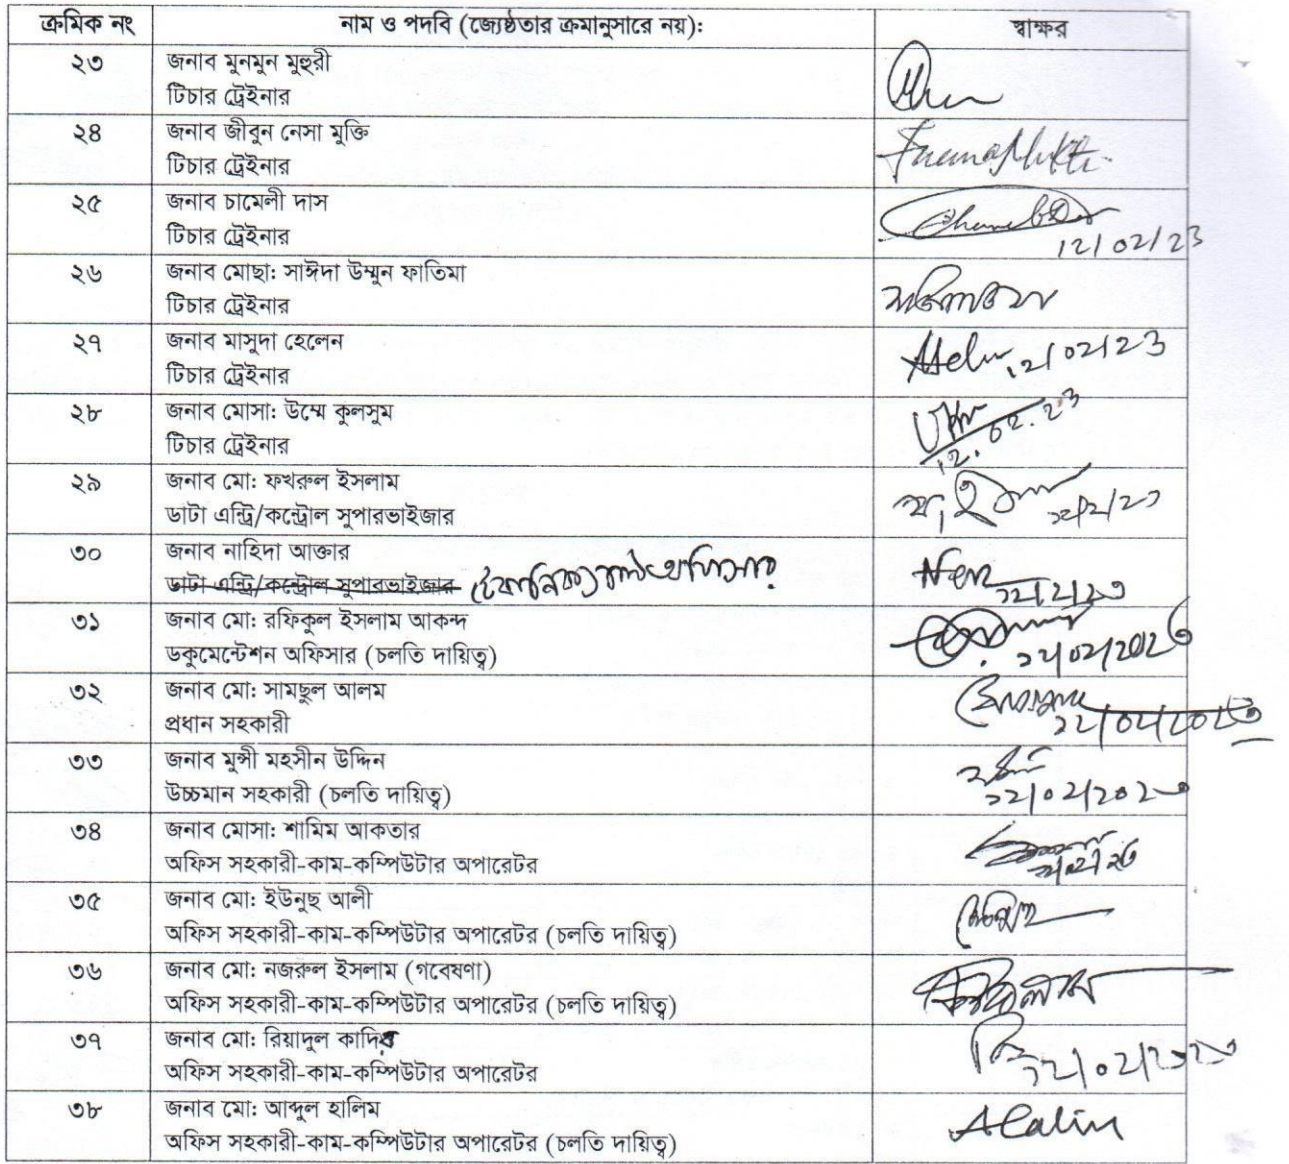 ক্রমিক নং নাম ও পদবি (জ্যেষ্ঠতার ক্রমানুসারে নয়): স্বাক্ষর
২৩ জনাব মুনমুন মুহুরী
টিচার ট্রেইনার
২৪ জনাব জীবুন নেসা মুক্তি
টিচার ট্রেইনার
২৫ জনাব চামেলী দাস
টিচার ট্রেইনার 12/02/23
২৬ জনাব মোছা: সাঈদা উম্মুন ফাতিমা
টিচার ট্রেইনার
২৭ জনাব মাসুদা হেলেন
টিচার ট্রেইনার 12/02/23
২৮ জনাব মোসা: উম্মে কুলসুম
টিচার ট্রেইনার 12.02.23
২৯ জনাব মো: ফখরুল ইসলাম
ডাটা এন্ট্রি/কন্ট্রোল সুপারভাইজার
৩০ জনাব নাহিদা আক্তার
ডাটা এন্ট্রি/কন্ট্রোল সুপারভাইজার ১২/২/২৩
৩১ জনাব মো: রফিকুল ইসলাম আকন্দ
ডকুমেন্টেশন অফিসার (চলতি দায়িত্ব) ১২/০২/২০২৩
৩২ জনাব মো: সামছুল আলম
প্রধান সহকারী ১২/০২/২০২৩
৩৩ জনাব মুন্সী মহসীন উদ্দিন
উচ্চমান সহকারী (চলতি দায়িত্ব) ১২/০২/২০২৩
৩৪ জনাব মোসা: শামিম আকতার
অফিস সহকারী-কাম-কম্পিউটার অপারেটর
৩৫ জনাব মো: ইউনুছ আলী
অফিস সহকারী-কাম-কম্পিউটার অপারেটর (চলতি দায়িত্ব)
৩৬ জনাব মো: নজরুল ইসলাম (গবেষণা)
অফিস সহকারী-কাম-কম্পিউটার অপারেটর (চলতি দায়িত্ব)
৩৭ জনাব মো: রিয়াদুল কাদির
অফিস সহকারী-কাম-কম্পিউটার অপারেটর ১২/০২/২০২৩
৩৮ জনাব মো: আব্দুল হালিম
অফিস সহকারী-কাম-কম্পিউটার অপারেটর (চলতি দায়িত্ব)